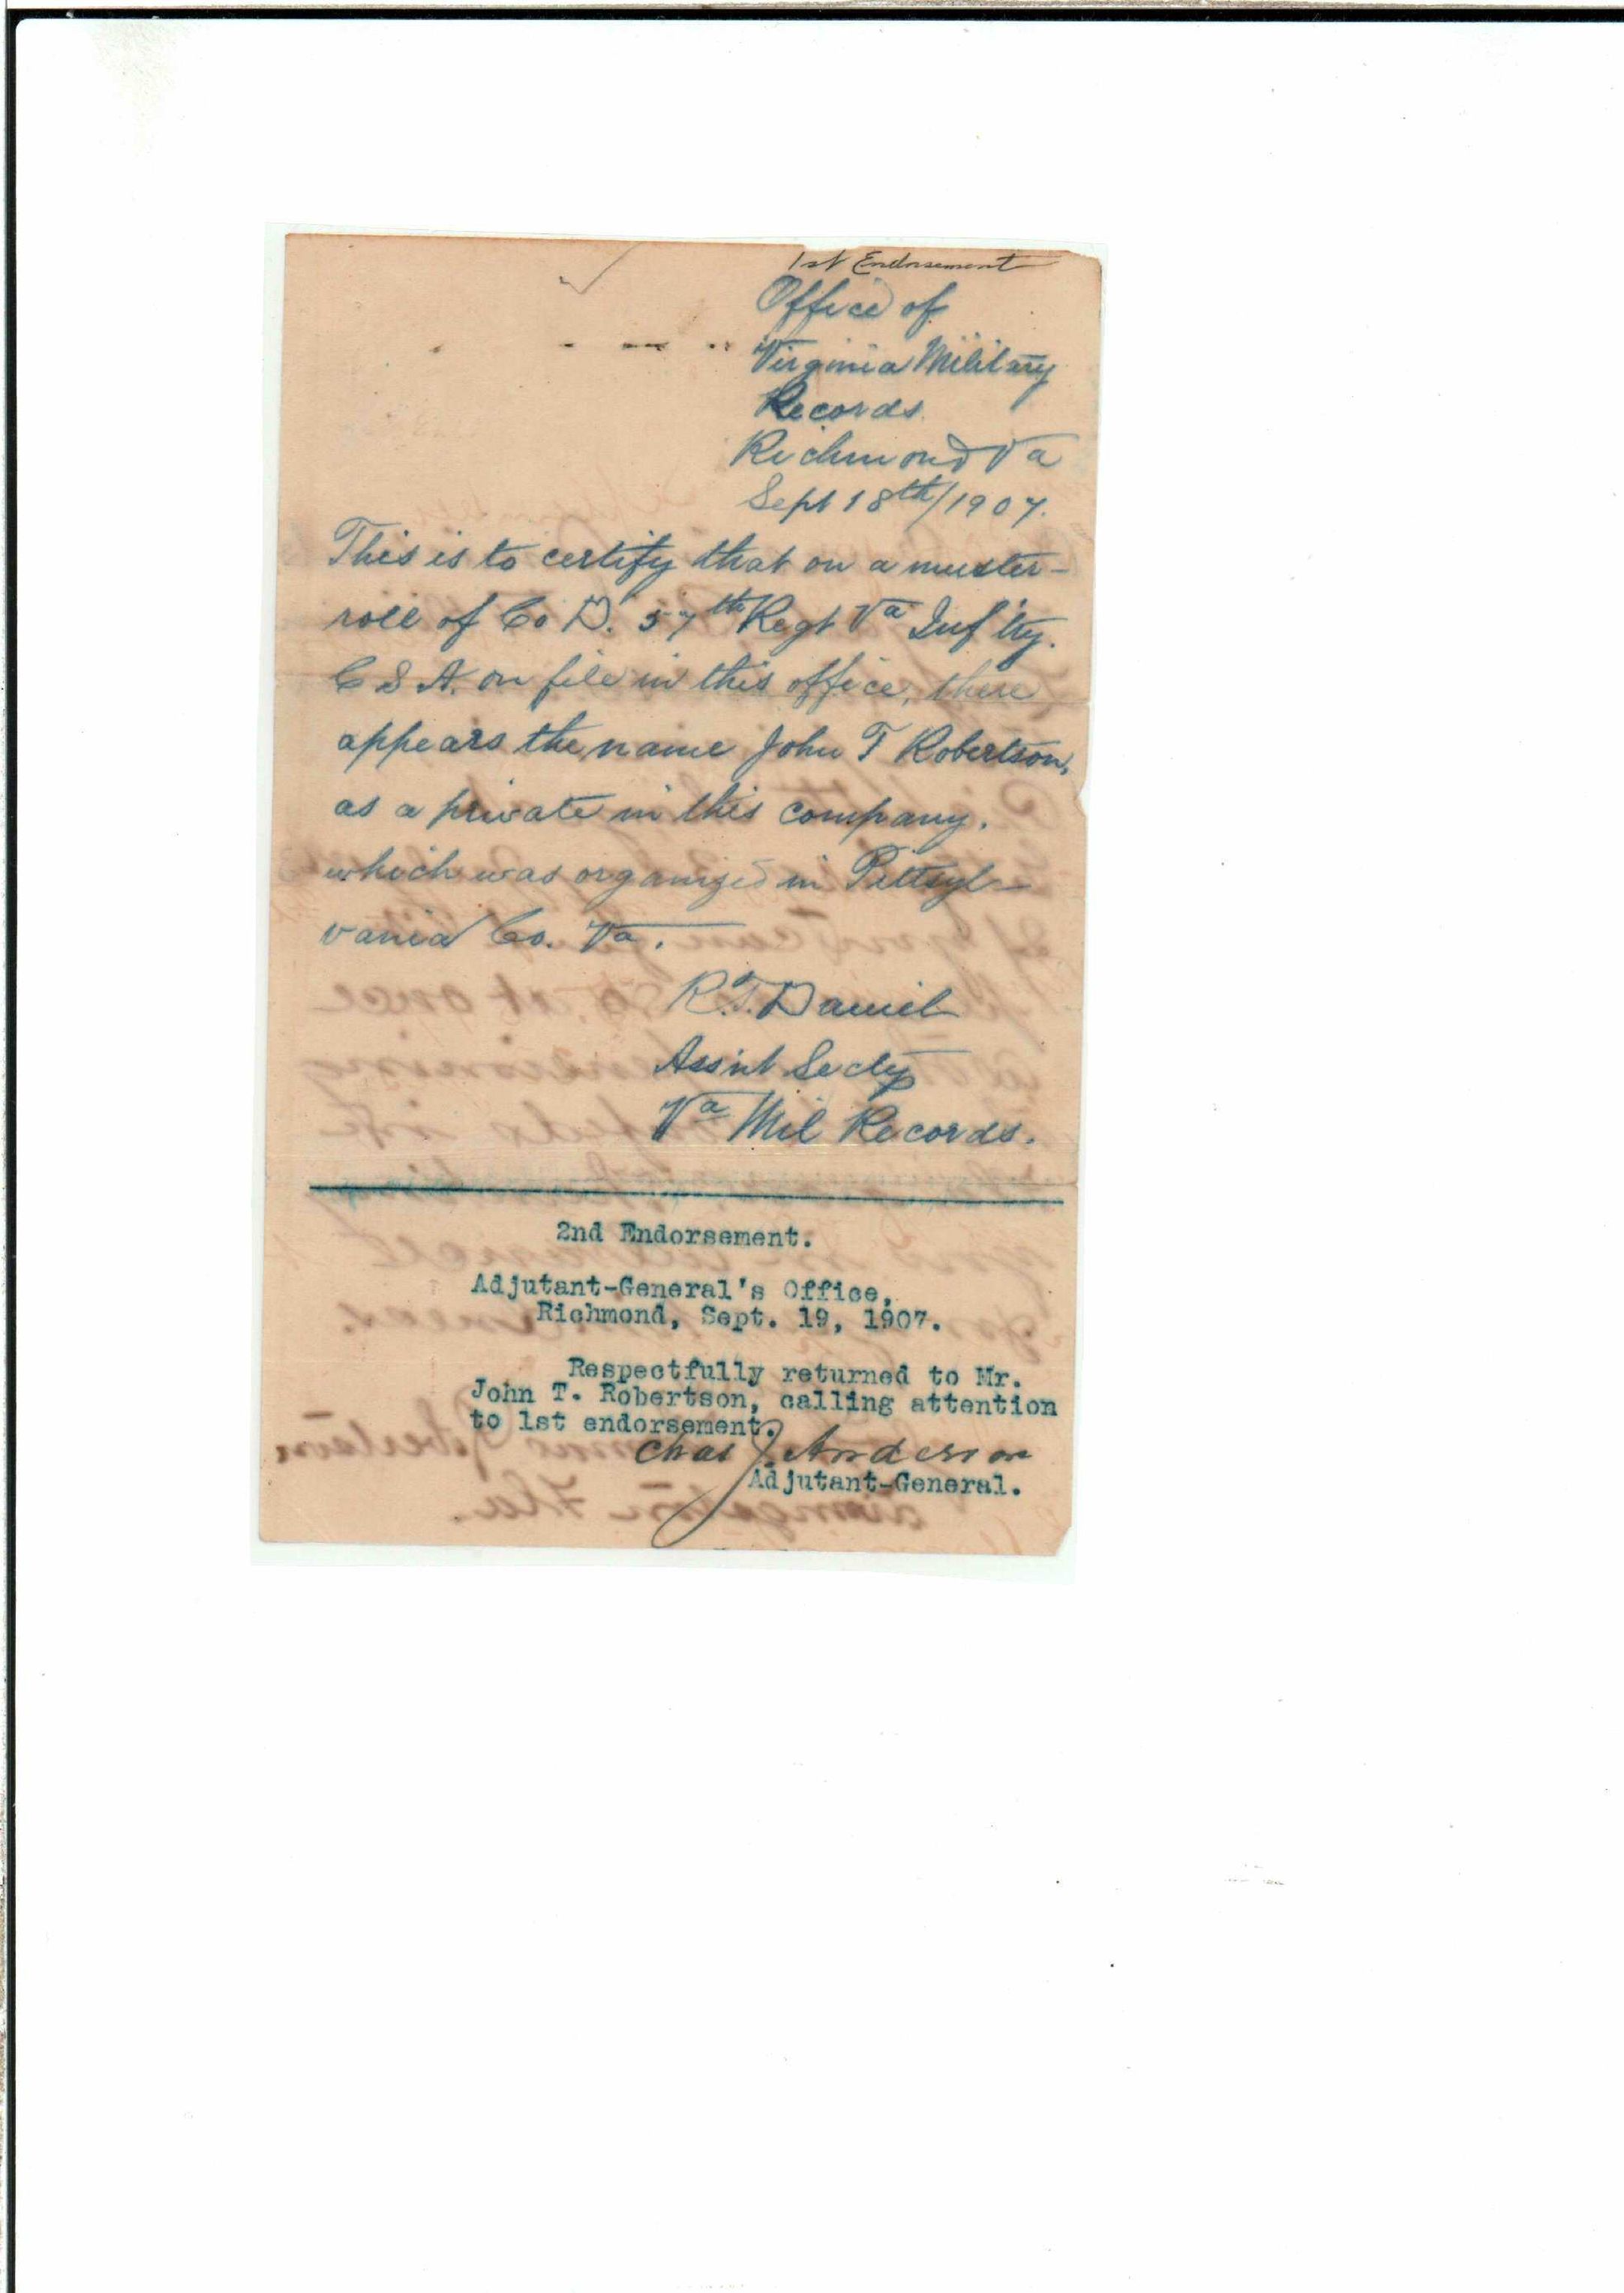 1st Endorsement
Office of
Virginia Military
Records.
Richmond Va
Sept 18th/1907.
This is to certify that on a muster-
roll of Co D. 57th Regt Va Inftry.
C S A. on file in this office, there
appears the name John T Robertson,
as a private in this company.
which was organized in Pittsyl-
vania Co. Va.
R.T. Daniel
Ass'nt Secty
Va Mil Records.
2nd Endorsement.
Adjutant-General's Office,
Richmond, Sept. 19, 1907.
Respectfully returned to Mr.
John T. Robertson, calling attention
to 1st endorsement.
Chas J. Anderson
Adjutant-General.